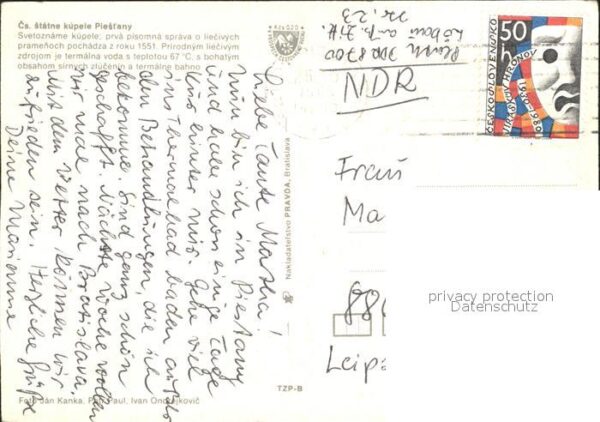 Čs. štátne kúpele Piešťany
Svetoznáme kúpele: prvá písomná správa o liečivých
prameňoch pochádza z roku 1551. Prírodným liečivým
zdrojom je termálna voda s teplotou 67 °C, s bohatým
obsahom sírnych zlúčenín a termálne bahno
Liebe Tante Martha!
Nun bin ich in Piestany
und habe schon einige Tage
hinter mir. Gehe viel
ins Thermalbad baden außer
den Behandlungen, die ich
bekomme. Sind ganz schön
geschafft. Nächste Woche wollen
wir mal nach Bratislava.
Mit dem Wetter können wir
zufrieden sein. Herzliche Grüße
Deine Marianne
Foto Ján Kanka, Paul, Ivan Ondrejkovič
Nakladateľstvo PRAVDA, Bratislava
TZP-B
DDR 8700
Nr. 23
NDR
50
ČESKOSLOVENSKO
JIRÁSKŮV HRONOV
1930-1980
Frau
Ma
Leip
privacy protection
Datenschutz